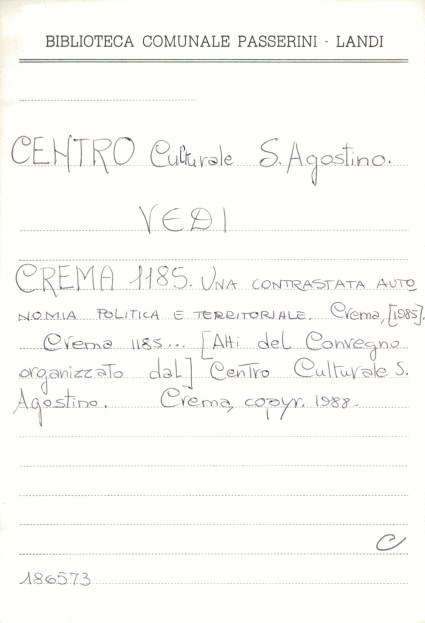 BIBLIOTECA COMUNALE PASSERINI - LANDI
CENTRO Culturale S. Agostino.
VEDI
CREMA 1185. UNA CONTRASTATA AUTO
NOMIA POLITICA E TERRITORIALE. Crema, [1985].
Crema 1185... [Atti del Convegno
organizzato dal] Centro Culturale S.
Agostino. Crema, copyr. 1988.
C
186573